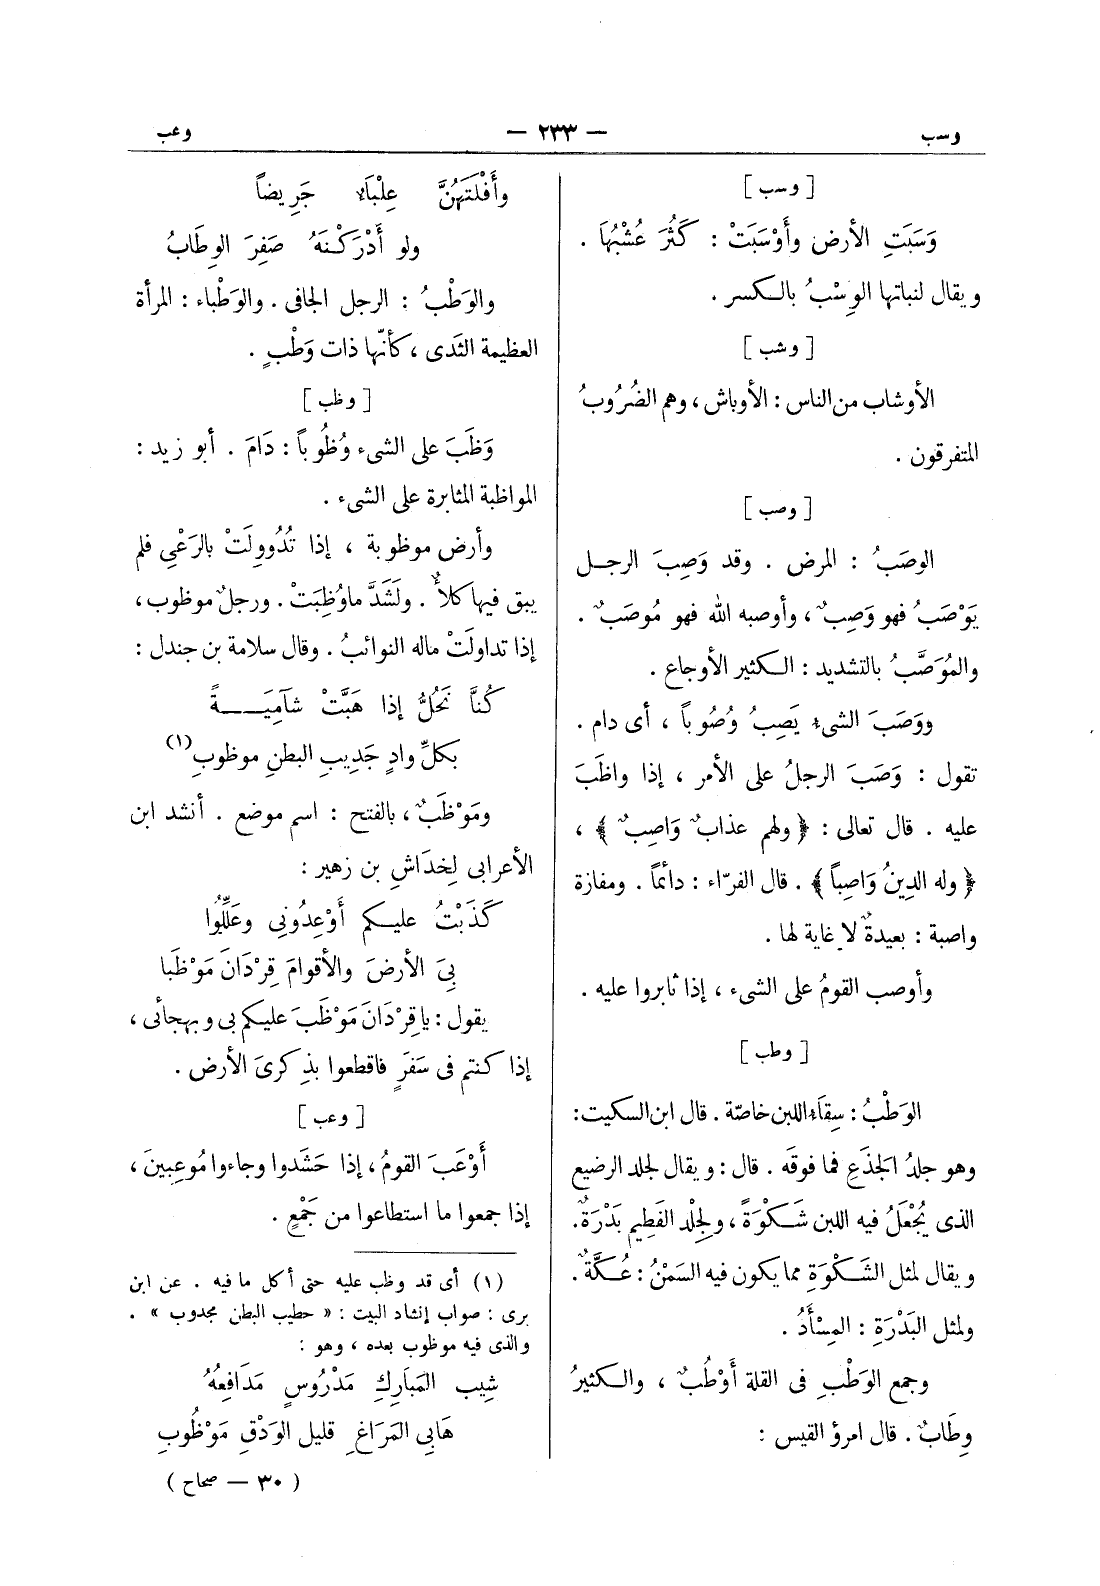 وسب
— ٢٣٣ —
وعب
[ وسب ]
وَسَبَتِ الأرض وأَوْسَبَتْ : كَثُرَ عُشْبُهَا .
ويقال لنباتها الوِسْبُ بالكسر .
[ وشب ]
الأوشاب من الناس : الأوباش ، وهم الضُرُوبُ
المتفرقون .
[ وصب ]
الوصَبُ : المرض . وقد وَصِبَ الرجل
يَوْصَبُ فهو وَصِبٌ ، وأوصبه الله فهو مُوصَبٌ .
والمُوَصَّبُ بالتشديد : الكثير الأوجاع .
ووَصَبَ الشىء يَصِبُ وُصُوباً ، أى دام .
تقول : وَصَبَ الرجلُ على الأمر ، إذا واظَبَ
عليه . قال تعالى : ﴿ ولهم عذابٌ وَاصِبٌ ﴾ ،
﴿ وله الدينُ وَاصِباً ﴾ . قال الفرّاء : دائماً . ومفازة
واصبة : بعيدةٌ لا غاية لها .
وأوصب القومُ على الشىء ، إذا ثابروا عليه .
[ وطب ]
الوَطْبُ : سِقَاء اللبن خاصّة . قال ابن السكيت :
وهو جلدُ الجَذَعِ فما فوقَه . قال : ويقال لجلد الرضيع
الذى يُجْعَلُ فيه اللبن شَكْوَةً ، ولجِلْد الفَطِيم بَدْرَةٌ .
ويقال لمثل الشَكْوَةِ مما يكون فيه السَمْنُ : عُكَّةٌ .
ولمثل البَدْرَةِ : المِسْأَدُ .
وجمع الوَطْبِ فى القلة أَوْطُبٌ ، والكثيرُ
وِطَابٌ . قال امرؤ القيس :
وأَفْلَتَهُنَّ عِلْبَاء جَرِيضاً
ولو أَدْرَكْنَهُ صَفِرَ الوِطَابُ
والوَطْبُ : الرجل الجافى . والوَطْباء : المرأة
العظيمة الثَدى ، كأنّها ذات وَطْبٍ .
[ وظب ]
وَظَبَ على الشىء وُظُوباً : دَامَ . أبو زيد :
المواظبة المثابرة على الشىء .
وأرض موظوبة ، إذا تُدُووِلَتْ بالرَعْىِ فلم
يبق فيها كلأٌ . ولَشَدَّ ماوُظِبَتْ . ورجلٌ موظوب ،
إذا تداولَتْ ماله النوائبُ . وقال سلامة بن جندل :
كُنَّا نَحُلُّ إذا هَبَّتْ شآمِيَةً
بكلِّ وادٍ جَدِيبِ البطنِ موظوبِ(١)
ومَوْظَبٌ ، بالفتح : اسم موضع . أنشد ابن
الأعرابى لِخدَاشِ بن زهير :
كَذَبْتُ عليكم أَوْعِدُونِى وعَلِّلُوا
بِىَ الأرضَ والأقوامَ قِرْدَانَ مَوْظَبا
يقول : ياقِرْدَانَ مَوْظَبَ عليكم بى وبهجائى ،
إذا كنتم فى سَفَرٍ فاقطعوا بذكرىَ الأرض .
[ وعب ]
أَوْعَبَ القومُ ، إذا حَشَدوا وجاءوا مُوعِبينَ ،
إذا جمعوا ما استطاعوا من جَمْعٍ .
(١) أى قد وظب عليه حتى أكل ما فيه . عن ابن
برى : صواب إنشاد البيت : « حطيب البطن مجدوب » .
والذى فيه موظوب بعده ، وهو :
شِيب المَبَارِكِ مَدْرُوسٍ مَدَافِعُهُ
هَابِى المَرَاغِ قليل الوَدْقِ مَوْظُوبِ
( ٣٠ — صحاح )